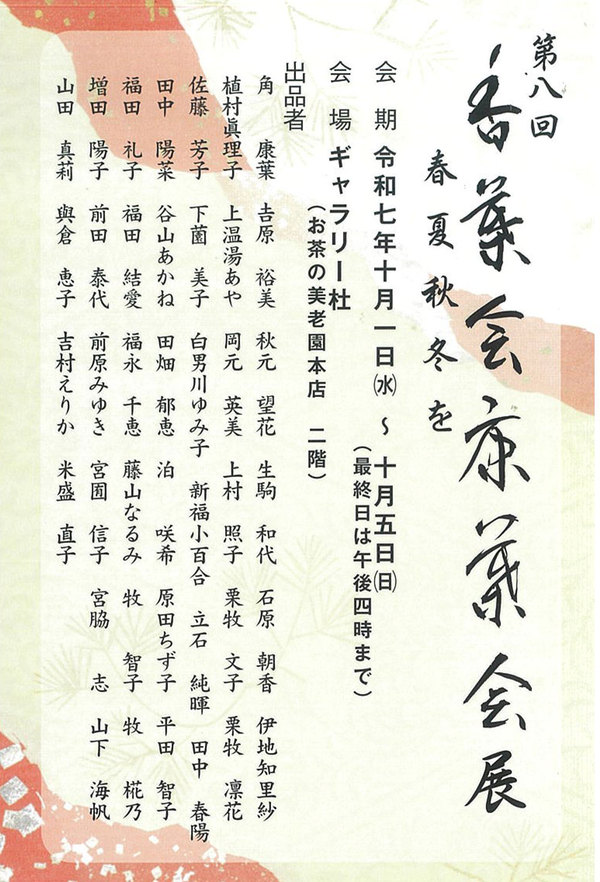 第八回
香葉会康葉会展
春夏秋冬を
会　期 令和七年十月一日㈬ ～ 十月五日㈰
（最終日は午後四時まで）
会　場 ギャラリー杜
（お茶の美老園本店　二階）
出品者
角　康葉　吉原　裕美　秋元　望花　生駒　和代　石原　朝香　伊地知里紗
植村眞理子　上温湯あや　岡元　英美　上村　照子　栗牧　文子　栗牧　凛花
佐藤　芳子　下薗　美子　白男川ゆみ子　新福小百合　立石　純暉　田中　春陽
田中　陽菜　谷山あかね　田畑　郁恵　泊　咲希　原田ちず子　平田　智子
福田　礼子　福田　結愛　福永　千恵　藤山なるみ　牧　智子　牧　椛乃
増田　陽子　前田　泰代　前原みゆき　宮囿　信子　宮脇　志　山下　海帆
山田　真莉　與倉　恵子　吉村えりか　米盛　直子